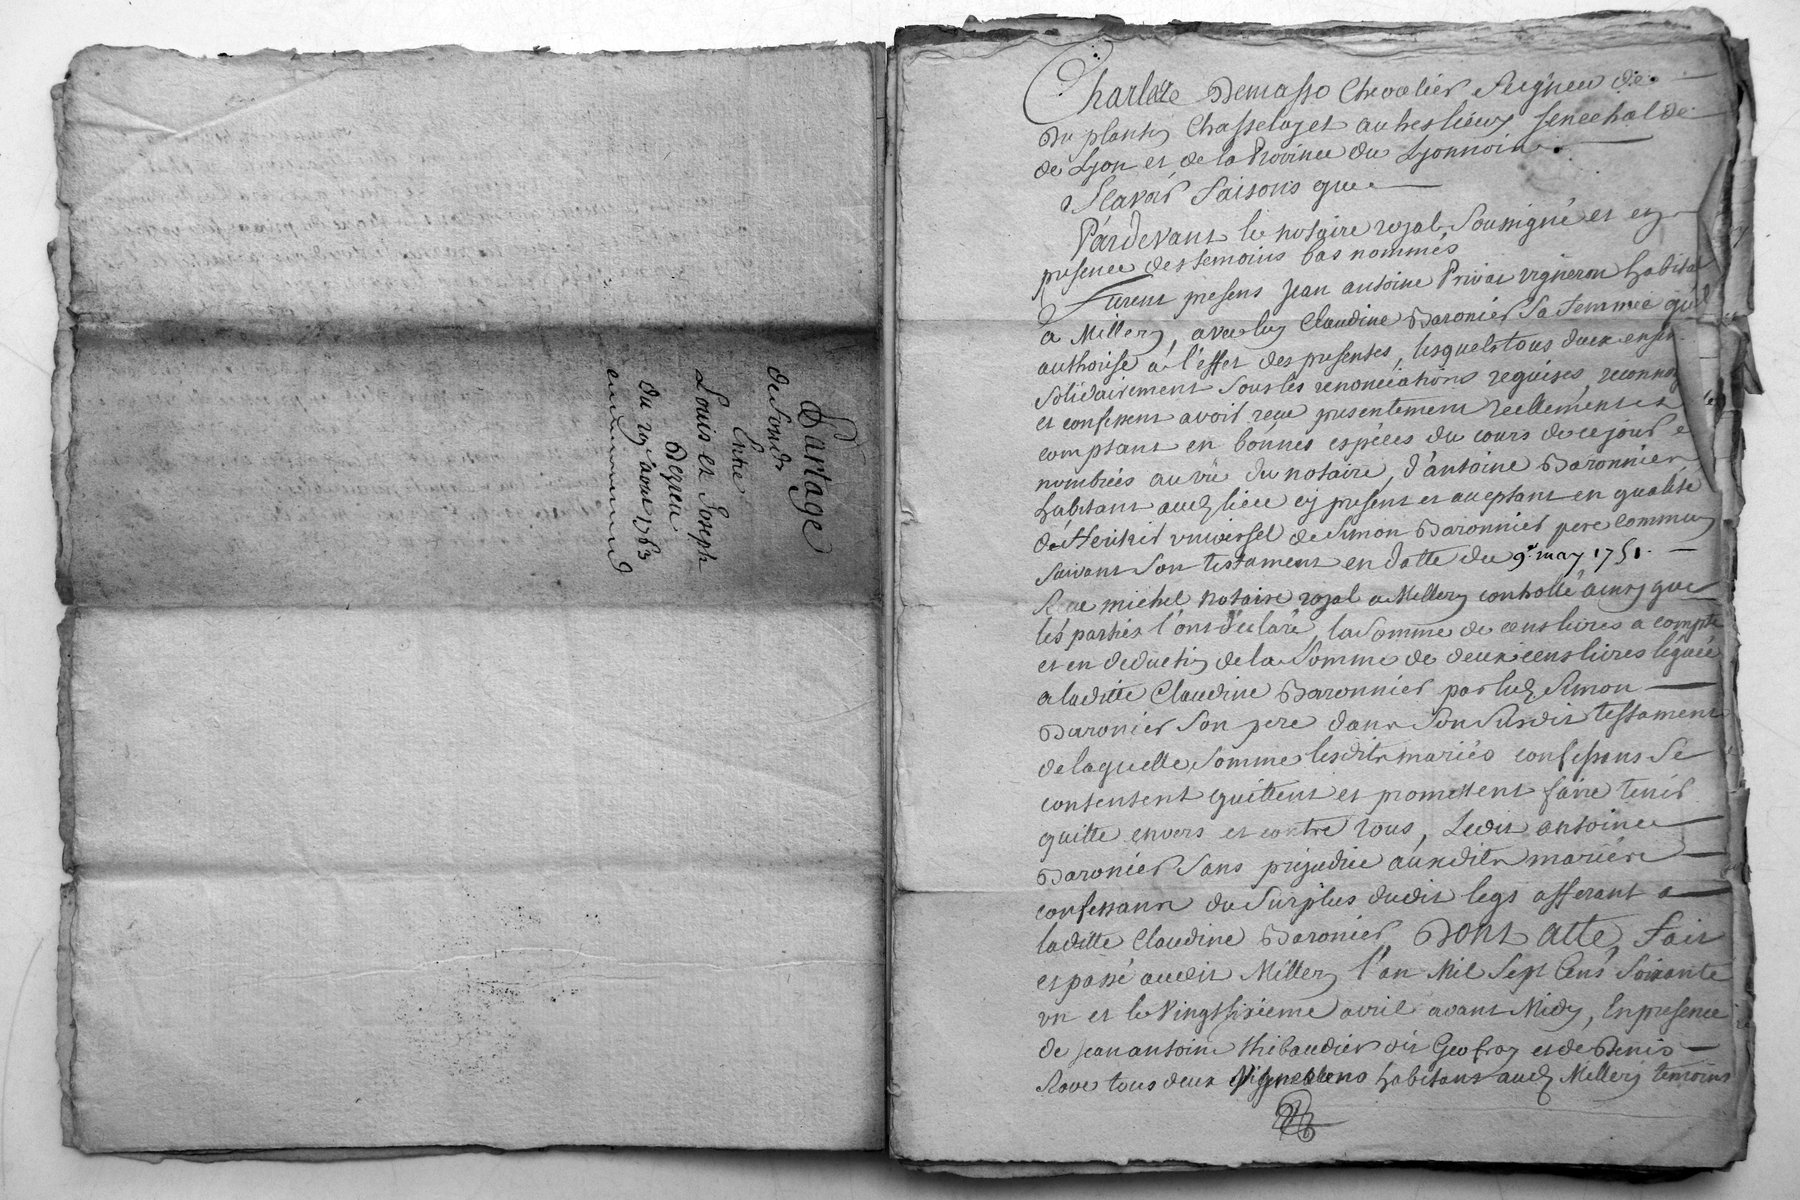 Partage
du fonds
Entre
Louis et Joseph
Degreu
du 19 aout 1763
Charlere Demasso Chevalier Seigneu de
Du plantin Chasselay et autres lieux senechal de
de Lyon et de la Province du Lyonnoin
Scavoir faisons que
Pardevant le notaire royal soussigné et en
presence des temoins bas nommés
furent presens Jean antoine Privat vigneron habitat
a Millery, avec luy Claudine Baronier sa femme qu'il
authorise a l'effet des presentes, lesquels tous deux ensem
solidairement sous les renonciations requises, reconnoi
et confessent avoir reçu presentement reellement et
comptant en bonnes espéces du cours de ce jour e
nombrées au vû du notaire, d'antoine Baronnier
habitant aud lieu cy present et aceptant en qualité
de Heritier universel de Simon Baronnier pere commun
suivant son testament en datte du 9e may 1751
Reçu michel notaire royal a Millery controllé ainsy que
les parties l'ont declaré, la somme de cens livres a compte
et en deduction de la somme de deux cens livres léguée
a laditte Claudine Baronnier par led Simon
Baronier son pere dans son susdit testament
de laquelle somme lesdits mariés confessans se
contentent quittent et promettent faire tenir
quitte envers et contre tous, Ledit antoine
Baronier sans prejudice auxdits mariére
confessans du surplus dudit legs afferant a
laditte Claudine Baronier, Dont acte, fait
et passé audit Millery l'an Mil Sept Cens soixante
un et le Vingt sixieme avril avant Midy, En presence
de Jean antoine thibaudier dit Geofray et de Denis
Rove tous deux Vignerons habitans aud Millery temoins